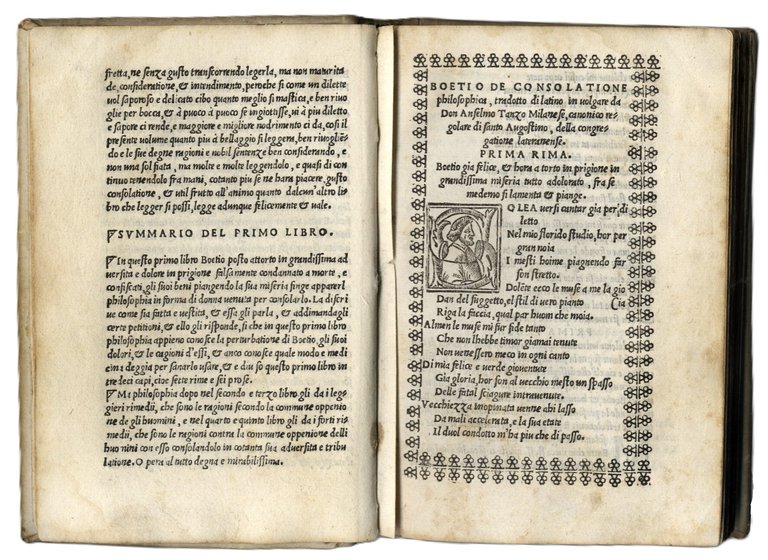 fretta, ne senza gusto transcorrendo legerla, ma non maturita
de, consideratione, & intendimento, peroche si come un dilette
vol saporoso e delicato cibo quanto meglio si mastica, e ben rivo
glie per bocca, & à puoco à puoco se ingiottisse, vi à piu diletto
e sapore ci rende, e maggiore e migliore nodrimento ci da, cosi il
presente volume quanto piu à bellaggio si leggera, ben rivogliẽ
do e le sue degne ragioni e nobil sentenze ben considerando, e
non una sol fiata, ma molte e molte leggendolo, e quasi di con
tinuo tenendolo fra mani, cotanto piu se ne hara piacere, gusto
consolatione, & util frutto all'animo quanto dalcun'altro li
bro che legger si possi, legge adunque felicemente & vale.
SVMMARIO DEL PRIMO LIBRO.
In questo primo libro Boetio posto attorto in grandissima ad
versita e dolore in prigione falsamente condannato a morte, e
confiscati, gli suoi beni piangendo la sua miseria finge apparerli
philosophia in forma di donna venuta per consolarlo. La discri
ve come sia fatta e vestita, & essa gli parla, & addimandagli
certe petitioni, & ello gli risponde, si che in questo primo libro
philosophia appieno conosce la perturbatione di Boetio, gli suoi
dolori, & le cagioni d'essi, & anco conosce qual modo e medi
cina deggia per sanarlo usare, & e diviso questo primo libro in
tredeci capi, cioe sette rime e sei prose.
Ma philosophia dopo nel secondo e terzo libro gli da i leg
gieri rimedii, che sono le ragioni secondo la commune oppenio
ne de gli huomini, e nel quarto e quinto libro gli da i forti ri
medii, che sono le ragioni contra la commune oppenione delli
huomini con esso consolandolo in cotanta sua adversita e tribu
latione. O pera al tutto degna e mirabilissima.
BOETIO DE CONSOLATIONE
philosophica, tradotto di latino in volgare da
Don Anselmo Tanzo Milanese, canonico re
golare di santo Augostino, della congre
gatione lateranense.
PRIMA RIMA.
Boetio gia felice, & hora a torto in prigione in
grandissima miseria tutto adolorato, fra se
medemo si lamenta & piange.
OLEA versi cantar gia per di
letto
Nel mio florido studio, hor per
gran noia
I mesti hoime piagnendo far
son stretto.
Dolẽte ecco le muse a me la gio
Dan del suggetto, el stil di vero pianto Cia
Riga la faccia, qual par huom che moia.
Almen le muse mi fur fide tanto
Che non lhebbe timor giamai tenute
Non venessero meco in ogni canto
Di mia felice e verde gioventute
Gia gloria, hor son al vecchio mesto un spasso
Delle fatal sciagure intravenute.
Vecchiezza inopinata venne ahi lasso
Da mali accelerata, e la sua etate
Il duol condotto m'ha piu che di passo.